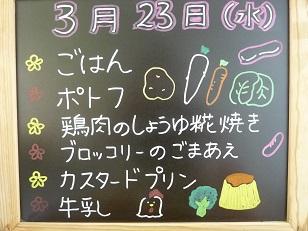 3月23日(水)
ごはん
ポトフ
鶏肉のしょうゆ糀焼き
ブロッコリーのごまあえ
カスタードプリン
牛乳